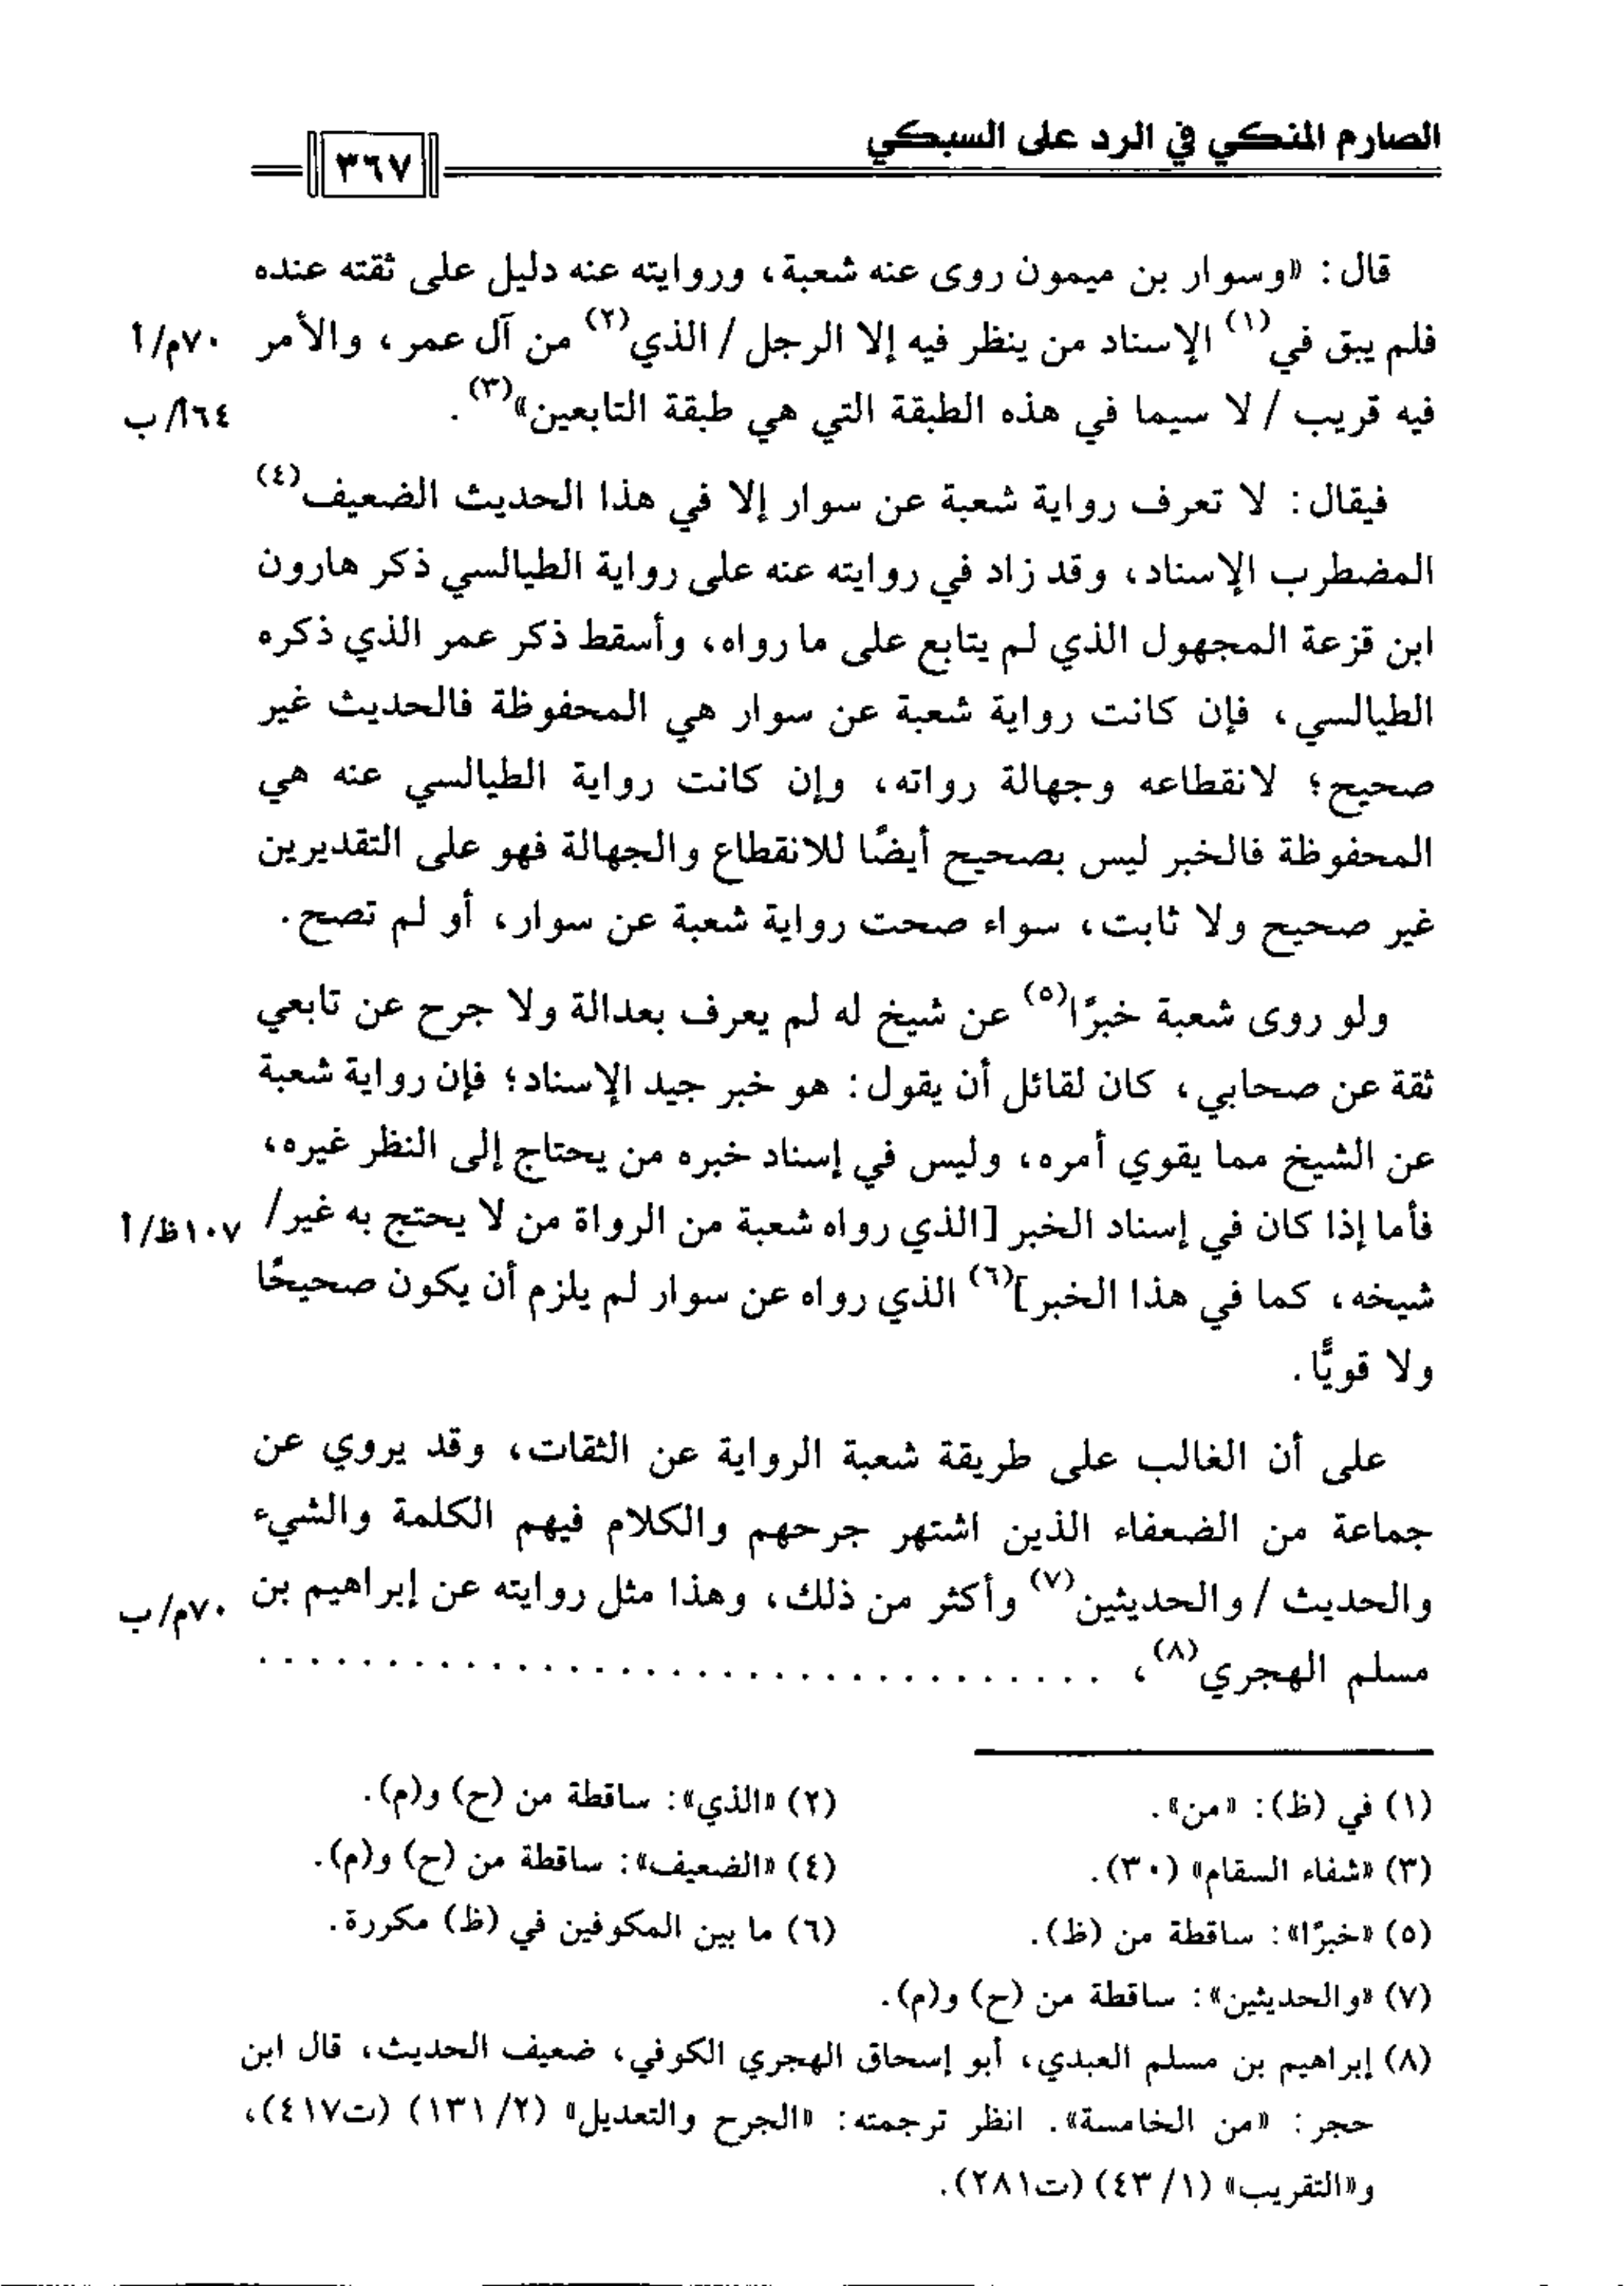 الصارم المنكي في الرد على السبكي
٣٦٧
قال: «وسوار بن ميمون روى عنه شعبة، وروايته عنه دليل على ثقته عنده
فلم يبق في(١) الإسناد من ينظر فيه إلا الرجل / الذي(٢) من آل عمر، والأمر
٧٠م/أ
فيه قريب / لا سيما في هذه الطبقة التي هي طبقة التابعين»(٣).
٦٤أ/ب
فيقال: لا تعرف رواية شعبة عن سوار إلا في هذا الحديث الضعيف(٤)
المضطرب الإسناد، وقد زاد في روايته عنه على رواية الطيالسي ذكر هارون
ابن قزعة المجهول الذي لم يتابع على ما رواه، وأسقط ذكر عمر الذي ذكره
الطيالسي، فإن كانت رواية شعبة عن سوار هي المحفوظة فالحديث غير
صحيح؛ لانقطاعه وجهالة رواته، وإن كانت رواية الطيالسي عنه هي
المحفوظة فالخبر ليس بصحيح أيضًا للانقطاع والجهالة فهو على التقديرين
غير صحيح ولا ثابت، سواء صحت رواية شعبة عن سوار، أو لم تصح.
ولو روى شعبة خبرًا(٥) عن شيخ له لم يعرف بعدالة ولا جرح عن تابعي
ثقة عن صحابي، كان لقائل أن يقول: هو خبر جيد الإسناد؛ فإن رواية شعبة
عن الشيخ مما يقوي أمره، وليس في إسناد خبره من يحتاج إلى النظر غيره،
فأما إذا كان في إسناد الخبر [الذي رواه شعبة من الرواة من لا يحتج به غير/
١٠٧ظ/أ
شيخه، كما في هذا الخبر](٦) الذي رواه عن سوار لم يلزم أن يكون صحيحًا
ولا قويًّا.
على أن الغالب على طريقة شعبة الرواية عن الثقات، وقد يروي عن
جماعة من الضعفاء الذين اشتهر جرحهم والكلام فيهم الكلمة والشيء
والحديث / والحديثين(٧) وأكثر من ذلك، وهذا مثل روايته عن إبراهيم بن
٧٠م/ب
مسلم الهجري(٨)، . . . . . . . . . . . . . . . . . . . . . . . . . . . . . . . . .
(١) في (ظ): «من».
(٢) «الذي»: ساقطة من (ح) و(م).
(٣) «شفاء السقام» (٣٠).
(٤) «الضعيف»: ساقطة من (ح) و(م).
(٥) «خبرًا»: ساقطة من (ظ).
(٦) ما بين المكوفين في (ظ) مكررة.
(٧) «والحديثين»: ساقطة من (ح) و(م).
(٨) إبراهيم بن مسلم العبدي، أبو إسحاق الهجري الكوفي، ضعيف الحديث، قال ابن
حجر: «من الخامسة». انظر ترجمته: «الجرح والتعديل» (٢/ ١٣١) (ت٤١٧)،
و«التقريب» (١/ ٤٣) (ت٢٨١).